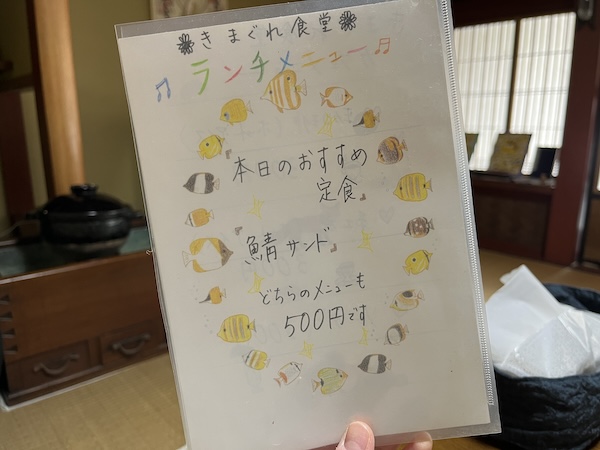 きまぐれ食堂
♫ランチメニュー♬
『本日のおすすめ
定食』
『鯖サンド』
どちらのメニューも
500円です